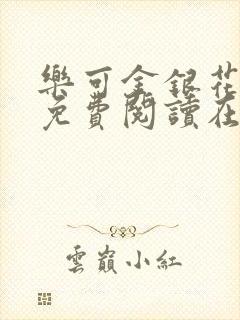 樂可金銀花
免費閱讀在
雲巔小紅